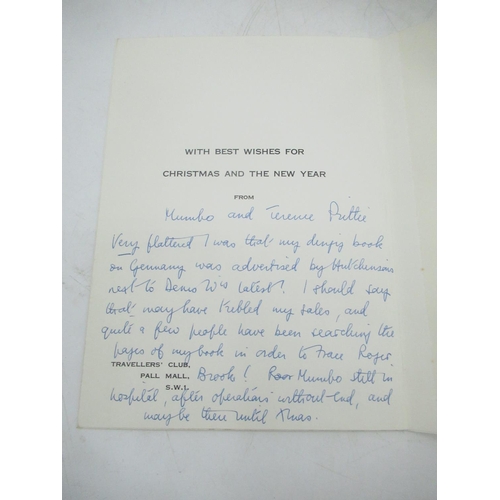 WITH BEST WISHES FOR
CHRISTMAS AND THE NEW YEAR
FROM
Mumbo and Terence Prittie
Very flattered I was that my dingy book
on Germany was advertised by Hutchinson
next to Denis W's latest! I should say
that may have trebled my sales, and
quite a few people have been searching the
pages of my book in order to trace Roger
TRAVELLERS' CLUB,
PALL MALL,
S.W.1.
Brook! Poor Mumbo still in
hospital, after operations without-end, and
maybe there until Xmas.